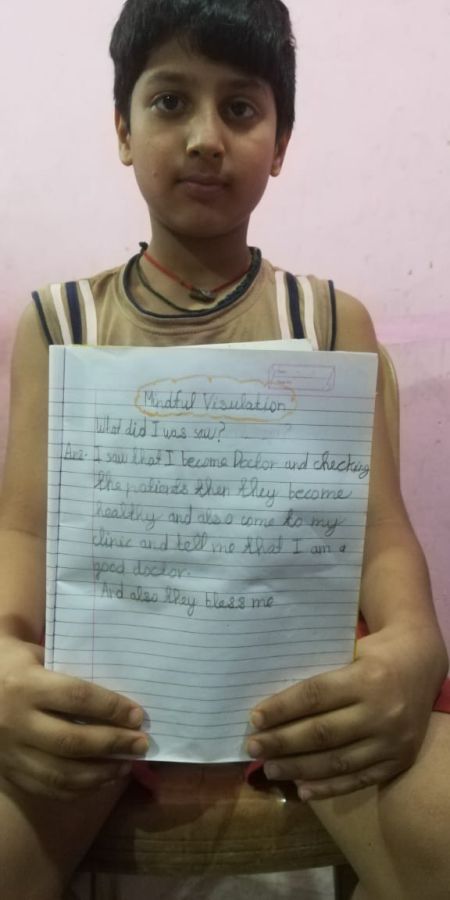 Mindful Visulation
What did I was saw?
Ans- I saw that I become Doctor and checking
the patients then they become
healthy and also come to my
clinic and tell me that I am a
good doctor.
And also they bless me